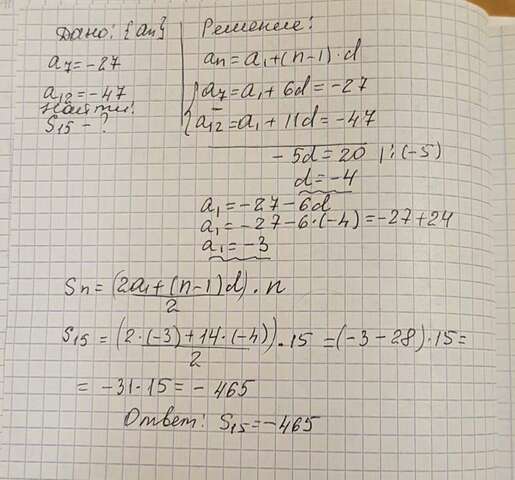 Дано: {an}
a7 = -27
a12 = -47
Найти:
S15 - ?
Решение:
an = a1 + (n-1) · d
{a7 = a1 + 6d = -27
{a12 = a1 + 11d = -47
-5d = 20 | : (-5)
d = -4
a1 = -27 - 6d
a1 = -27 - 6 · (-4) = -27 + 24
a1 = -3
Sn = (2a1 + (n-1)d)/2 · n
S15 = (2 · (-3) + 14 · (-4))/2 · 15 = (-3 - 28) · 15 =
= -31 · 15 = - 465
Ответ: S15 = -465